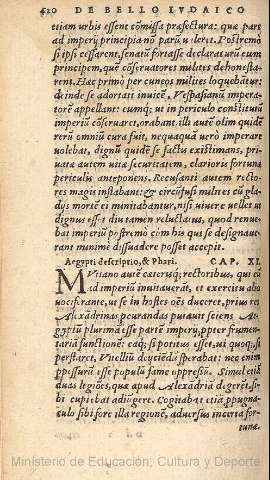 620 DE BELLO IVDAICO
etiam urbis essent cōmissa præfectura: quæ pars
ad imperij principia nō parū ualeret. Postremò
si ipsi cessarent, senatū fortasse declaraturū eum
principem, quē cōseruatores milites dehonesta-
rent. Hæc primò per cuneos milites loquebātur:
& inde se adortati inuicē, Vespasianū impera-
torē appellant: eumq; ut in periculo constitutū
imperiū cōseruaret, orabant. illi autē olim quidē
rerū omniū cura fuit, nequaquā uerò imperare
uolebat, dignū quidē se factis existimans, pri-
uatæ autem uitæ securitatem, clarioris fortunæ
periculis anteponens. Recusanti autem recto-
res magis instabant: & circūfusi milites cū gla-
dijs mortē ei minitabantur, nisi uiuere uellet ut
dignus esset diu tamen reluctatus, quod renue-
bat imperiū postremò cùm his qui se designaue-
rant minimè dissuadere posset accepit.
Aegypti descriptio, & Phari. CAP. XI.
MVtiano autē cæterisq; rectoribus, qui eū
ad imperiū inuitauerāt, et exercitu alio
uociferante, ut se in hostes oēs duceret, prius res
Alexādrinas procurandas putauit sciens Ae-
gyptū plurimā esse partē imperij, ppter frumen-
tariā functionē: eaq; si potitus esset, ui quoq; si
perstaret, Vitelliū deijciēdū sperabat: neq enim
ppessurū esse populū famē oppressū. Simul etiā
duas legiōes, quæ apud Alexādriā degerēt, si-
bi cupiebat adiūgere. Cogitabat etiā ppugna-
culo sibi fore illā regionē, aduersus incerta for-
tunæ.
Ministerio de Educación, Cultura y Deporte